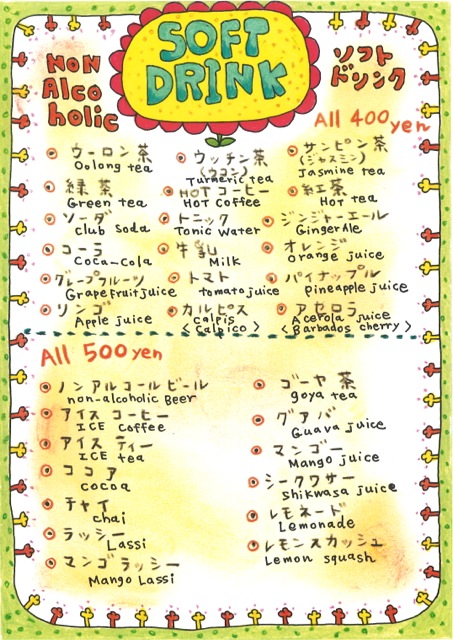 SOFT
DRINK
NON
Alco
holic
ソフト
ドリンク
All 400 yen
ウーロン茶
Oolong tea
ウッチン茶
(ウコン)
Turmeric tea
サンピン茶
(ジャスミン)
Jasmine tea
緑茶
Green tea
HOTコーヒー
HOT Coffee
紅茶
HOT tea
ソーダ
club Soda
トニック
Tonic Water
ジンジャーエール
GingerAle
コーラ
Coca-Cola
牛乳
Milk
オレンジ
orange juice
グレープフルーツ
Grapefruit juice
トマト
tomato juice
パイナップル
Pineapple juice
リンゴ
Apple juice
カルピス
<calpis
Calpico>
アセロラ
Acerola juice
<Barbados cherry>
All 500 yen
ノンアルコールビール
non-alcoholic Beer
アイスコーヒー
ICE Coffee
アイスティー
ICE tea
ココア
cocoa
チャイ
chai
ラッシー
Lassi
マンゴラッシー
Mango Lassi
ゴーヤ茶
goya tea
グアバ
Guava juice
マンゴー
Mango juice
シークワサー
Shikwasa juice
レモネード
Lemonade
レモンスカッシュ
Lemon squash